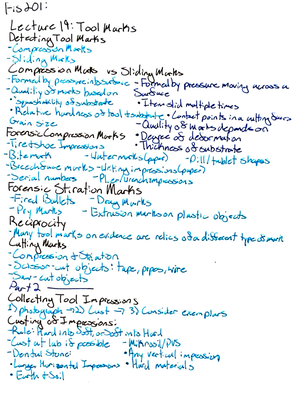 FIS201:
Lecture 19: Tool Marks
Detecting Tool Marks
-Compression Marks
-Sliding Marks
Compression Marks vs Sliding Marks
-Formed by pressure into substance -Formed by pressure moving across a surface
-Quality of marks based on
•squashability of substrate
•Item slid multiple times
•Relative hardness of tool + substrate •Contact points in a cutting
Grain size
-Quality of Marks depends on
•Degree of deformation
•Thickness of substrate
Forensic Compression Marks
-Tire + shoe Impressions
-Bite mark -Water marks (paper) -Pill/tablet shapes
-Breechface marks -Writing impressions (paper)
-Serial numbers -Plier/wrench impressions
Forensic Striation Marks
-Fired Bullets -Drag Marks
-Pry Marks -Extrusion marks on plastic objects
Reciprocity
-Many tool marks on evidence are relics of a different type of mark
Cutting Marks
-Compression & Striation
-Scissor-cut objects: tape, paper, wire
-Saw-cut objects
Part 2
Collecting Tool Impressions
1) photograph → 2) Cast → 3) Consider exemplars
Casting of Impressions:
-Rule: Hard into Soft, or Soft into Hard
-Cast at lab if possible -Mikrosil/PVS
-Dental Stone: •Any vertical impression
•Larger Horizontal Impressions •Hard materials
•Earth & Soil